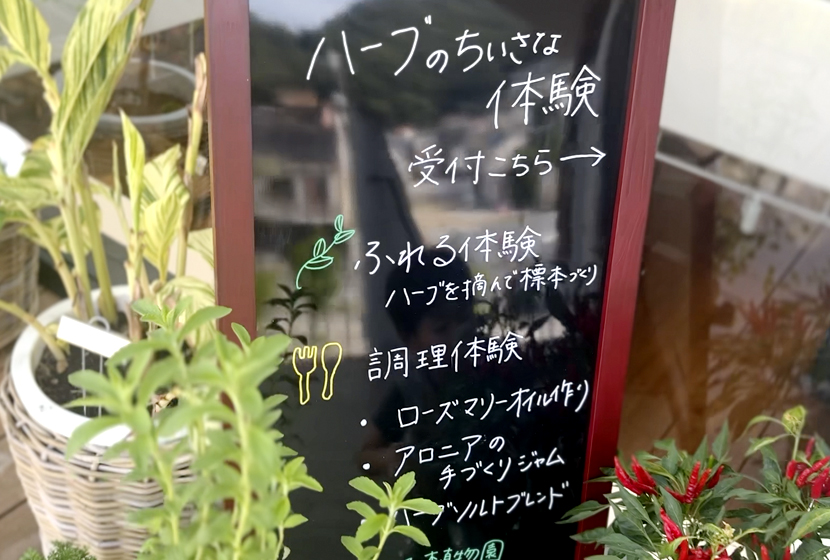 ハーブのちいさな
体験
受付こちら→
ふれる体験
ハーブを摘んで標本づくり
調理体験
・ローズマリーオイル作り
・アロニアの
手づくりジャム
ハーブソルトブレンド